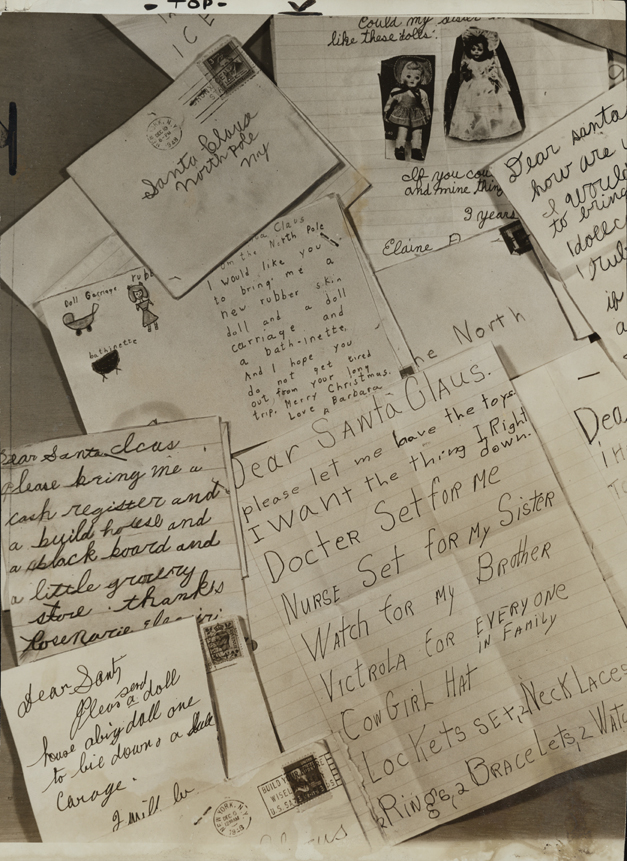 - TOP-
ICE
Could my sister
like these dolls.
If you cou
and mine thin
9 years
Elaine
Santa Claus
North Pole
NY
Dear santa
how are
I would
to bring
Idollc
I rub
if
a
Doll Garriage
rubb
bathinette
Claus
om the North Pole
I would like you
to bring me a
new rubber skin
doll and a doll
carriage and
a bath-inette,
And I hope you
do not get tired
out from your long
trip. Merry Christmas.
Love Barbara
he North
Dear Santa Claus.
please let me have the toys
I want the thing I Right
down.
Docter Set for me
Nurse Set for my Sister
Watch for my Brother
Victrola for everyone
in Family
CowGirl Hat
Lockets set, 2 Necklaces
2 Rings, 2 Bracelets, 2 Watc
Dea
I H
To
Dear Santa Claus
please bring me a
cash register and
a build house and
a black board and
a little grocery
store. thanks
Rosemarie
Dear Sant
Pleas send
a doll
house a big doll one
to bie downs a
carage.
I will be
NEW YORK, N.Y.
BUILD
U.S. SA